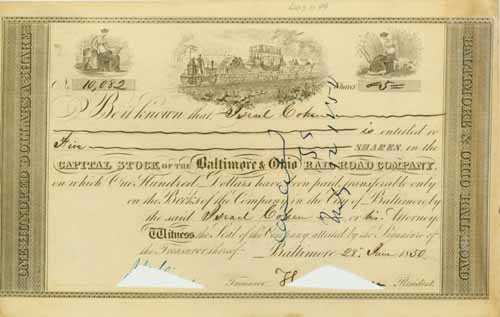 No. 10,082
Shares 5
Be it known that Israel Cohen
is entitled to
Five SHARES, in the
CAPITAL STOCK OF THE Baltimore & Ohio RAIL-ROAD COMPANY,
on which One Hundred Dollars have been paid transferable only
on the Books of the Company in the City of Baltimore by
the said Israel Cohen or his Attorney.
Witness the Seal of the Company attested by the Signature of
the Treasurer thereof. Baltimore 28 June 1850
Treasurer President.
ONE HUNDRED DOLLARS A SHARE
BALTIMORE & OHIO RAIL ROAD